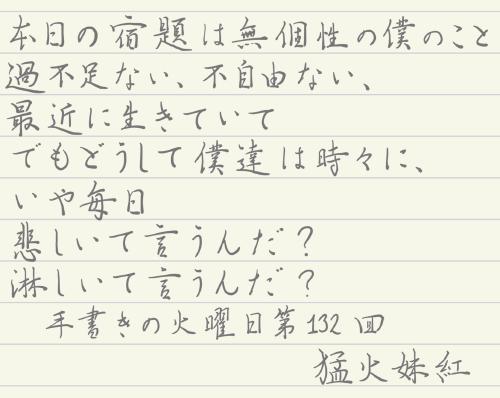 本日の宿題は無個性の僕のこと
過不足ない、不自由ない、
最近に生きていて
でもどうして僕達は時々に、
いや毎日
悲しいて言うんだ？
淋しいて言うんだ？
手書きの火曜日第132回
猛火妹紅